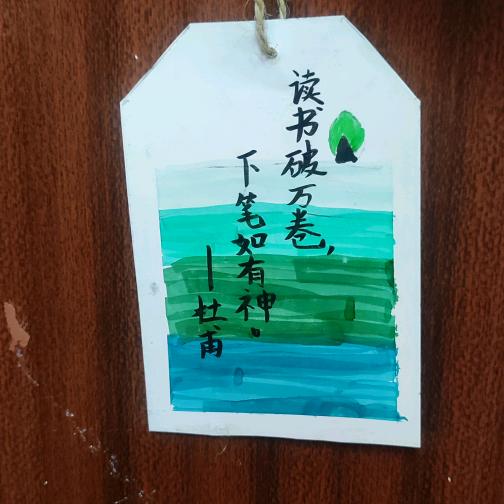 读书破万卷，
下笔如有神。
—杜甫